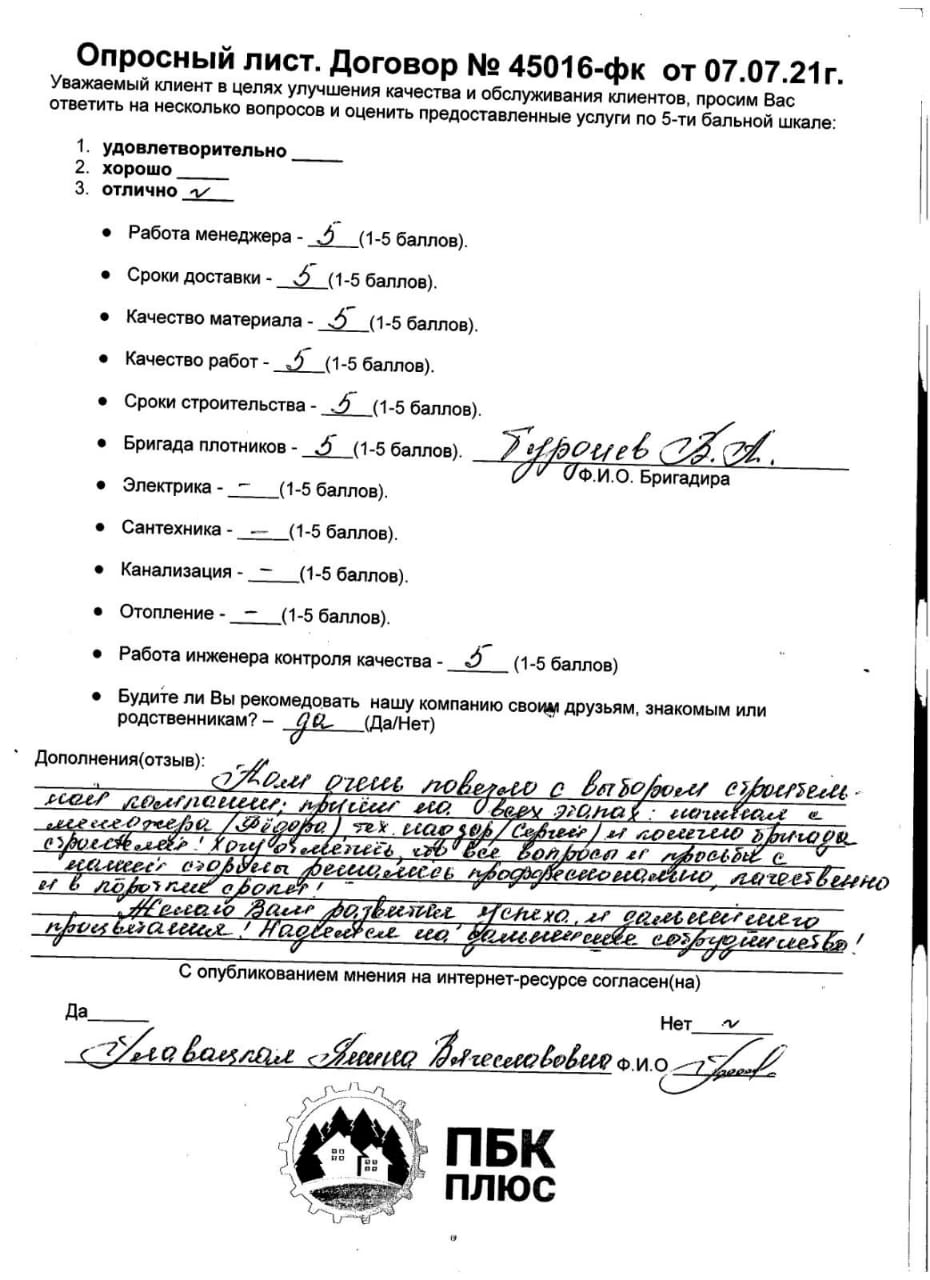 Опросный лист. Договор № 45016-фк от 07.07.21г.
Уважаемый клиент в целях улучшения качества и обслуживания клиентов, просим Вас
ответить на несколько вопросов и оценить предоставленные услуги по 5-ти бальной шкале:
1. удовлетворительно _____
2. хорошо _____
3. отлично ✓
• Работа менеджера - 5 (1-5 баллов).
• Сроки доставки - 5 (1-5 баллов).
• Качество материала - 5 (1-5 баллов).
• Качество работ - 5 (1-5 баллов).
• Сроки строительства - 5 (1-5 баллов).
• Бригада плотников - 5 (1-5 баллов). В.А.
Ф.И.О. Бригадира
• Электрика - – (1-5 баллов).
• Сантехника - – (1-5 баллов).
• Канализация - – (1-5 баллов).
• Отопление - – (1-5 баллов).
• Работа инженера контроля качества - 5 (1-5 баллов)
• Будите ли Вы рекомедовать нашу компанию своим друзьям, знакомым или
родственникам? – да (Да/Нет)
Дополнения(отзыв):
Нам очень повезло с выбором строитель-
ной компании, причём на всех этапах: начиная с
менеджера (Фёдора), тех. надзор (Сергей) и конечно бригада
строителей! Хочу отметить, что все вопросы и просьбы с
нашей стороны решались профессионально, качественно
и в короткие сроки!
Желаю Вам развития, успеха и дальнейшего
процветания! Надеемся на дальнейшее сотрудничество!
С опубликованием мнения на интернет-ресурсе согласен(на)
Да_____ Нет ✓
Главацкая Янина Вячеславовна Ф.И.О
ПБК
ПЛЮС